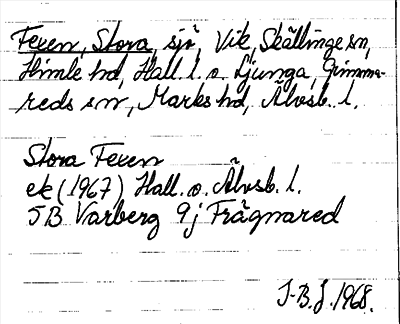 Feren, Stora, sjö, Vik, Skällinge sn,
Himle hd, Hall. l. o. Ljunga, Grimma-
reds sn, Marks hd, Älvsb. l.
Stora Feren
ek (1967) Hall. o. Älvsb. l.
5B Varberg 9j Frägnared
I-B.J. 1968.